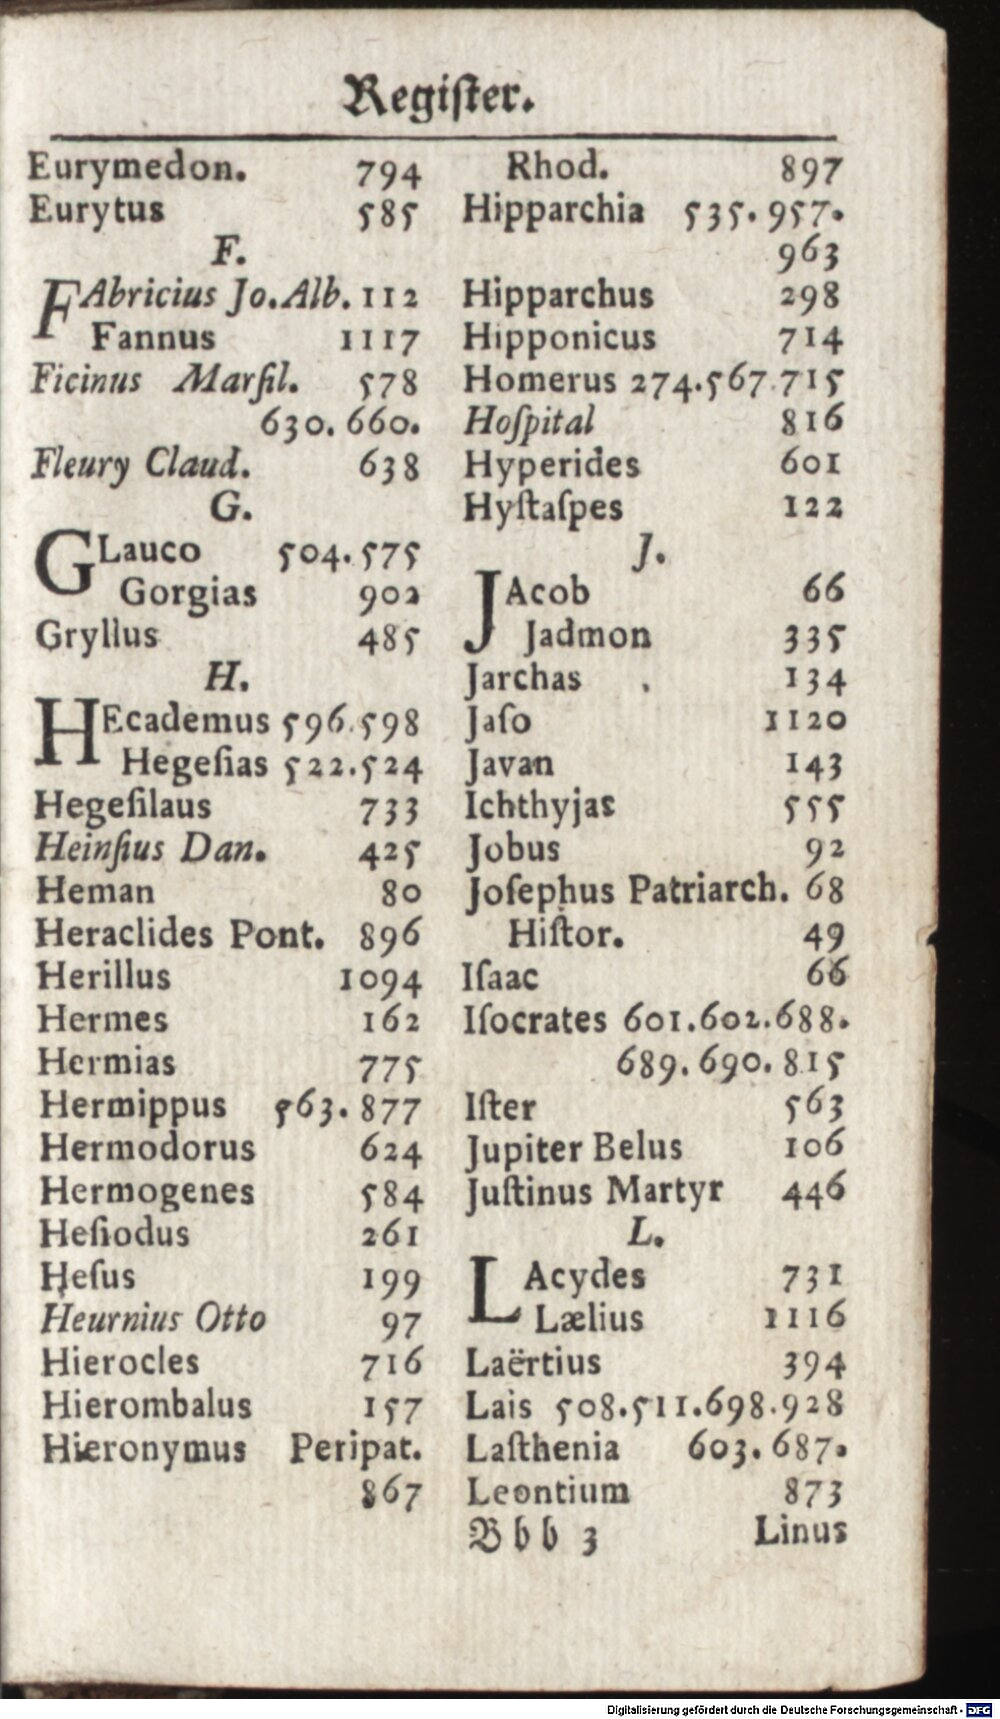 Regiſter.
Eurymedon. 794
Eurytus 585
F.
FAbricius Jo. Alb. 112
Fannus 1117
Ficinus Marſil. 578
630. 660.
Fleury Claud. 638
G.
GLauco 504. 575
Gorgias 902
Gryllus 485
H.
HEcademus 596. 598
Hegeſias 522. 524
Hegeſilaus 733
Heinſius Dan. 425
Heman 80
Heraclides Pont. 896
Herillus 1094
Hermes 162
Hermias 775
Hermippus 563. 877
Hermodorus 624
Hermogenes 584
Heſiodus 261
Heſus 199
Heurnius Otto 97
Hierocles 716
Hierombalus 157
Hieronymus Peripat.
867
Rhod. 897
Hipparchia 535. 957.
963
Hipparchus 298
Hipponicus 714
Homerus 274. 567. 715
Hoſpital 816
Hyperides 601
Hyſtaſpes 122
J.
JAcob 66
Jadmon 335
Jarchas 134
Jaſo 1120
Javan 143
Ichthyjas 555
Jobus 92
Joſephus Patriarch. 68
Hiſtor. 49
Iſaac 66
Iſocrates 601. 602. 688.
689. 690. 815
Iſter 563
Jupiter Belus 106
Juſtinus Martyr 446
L.
LAcydes 731
Lælius 1116
Laërtius 394
Lais 508. 511. 698. 928
Laſthenia 603. 687.
Leontium 873
Bbb 3 Linus
Digitalisierung gefördert durch die Deutsche Forschungsgemeinschaft - DFG